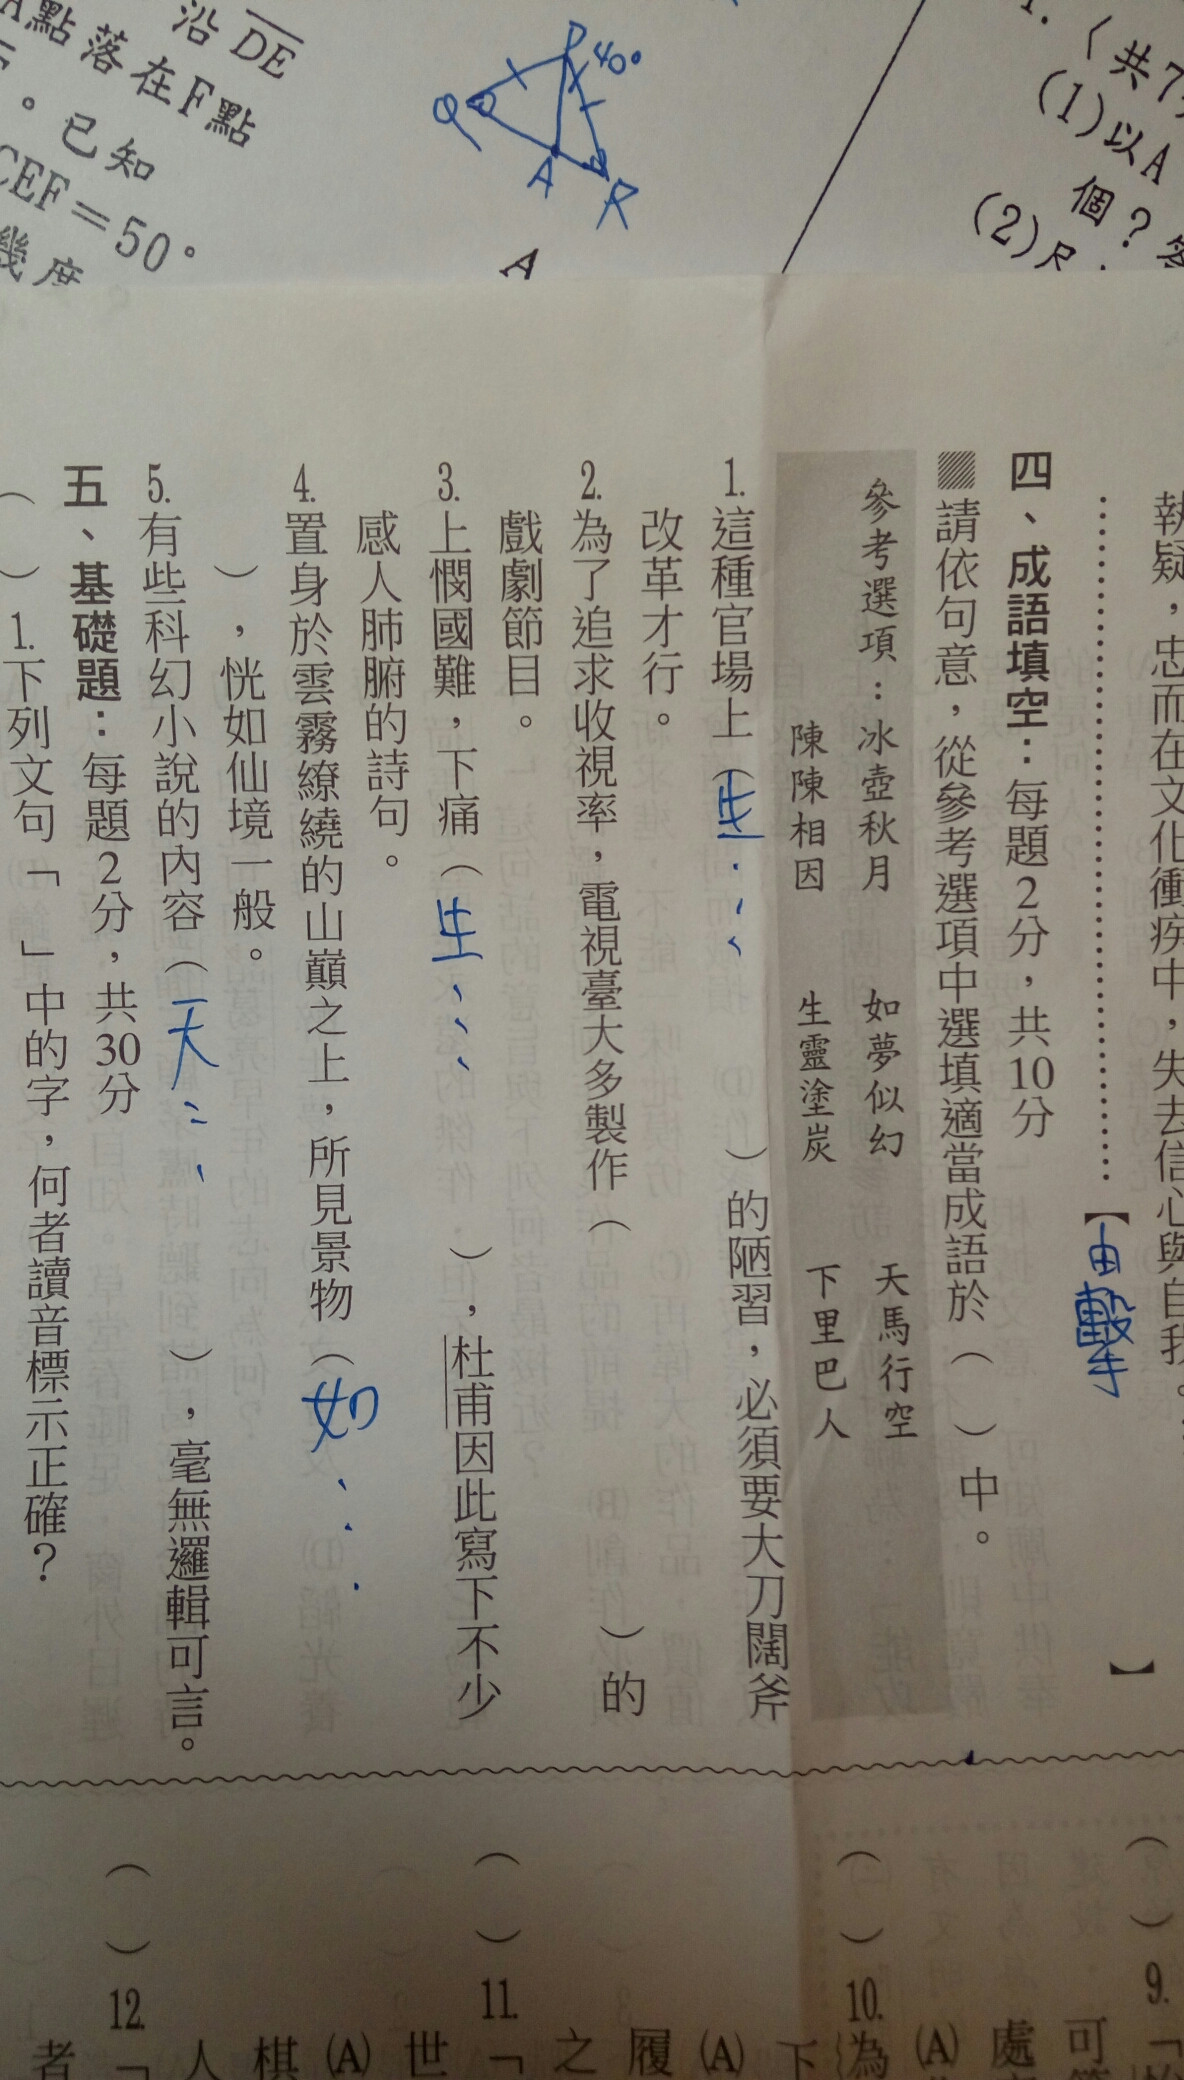 沿DE
A點落在F點
。已知
CEF=50°
幾度
P
40°
Q
A
R
A
(共7
(1)以A
個?答
(2)尺
執疑,忠而在文化衝疾中,失去信心與自我。
【由擊】
四、成語填空:每題2分,共10分
▨請依句意,從參考選項中選填適當成語於( )中。
參考選項:冰壺秋月 如夢似幻 天馬行空
陳陳相因 生靈塗炭 下里巴人
1.這種官場上( )的陋習,必須要大刀闊斧
改革才行。
2.為了追求收視率,電視臺大多製作( )的
戲劇節目。
3.上憫國難,下痛(生、、、),杜甫因此寫下不少
感人肺腑的詩句。
4.置身於雲霧繚繞的山巔之上,所見景物(如、、、
),恍如仙境一般。
5.有些科幻小說的內容(天、、、),毫無邏輯可言。
五、基礎題:每題2分,共30分
( )1.下列文句「 」中的字,何者讀音標示正確?
( )9.「
可
處
(A)
( )10.為
下
(A)
履
之
( )11.「
世
(A)
棋
人
( )12.「
者